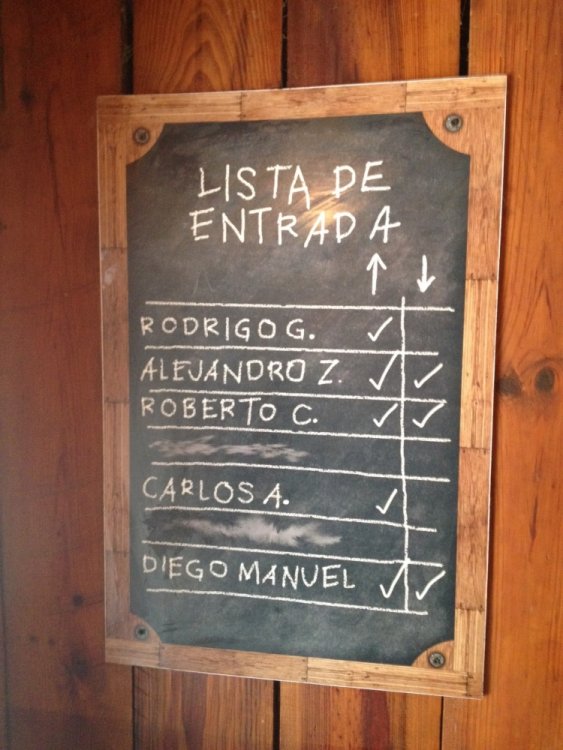 LISTA DE
ENTRADA
↑ ↓
RODRIGO G. ✓
ALEJANDRO Z. ✓ ✓
ROBERTO C. ✓ ✓
CARLOS A. ✓
DIEGO MANUEL ✓ ✓